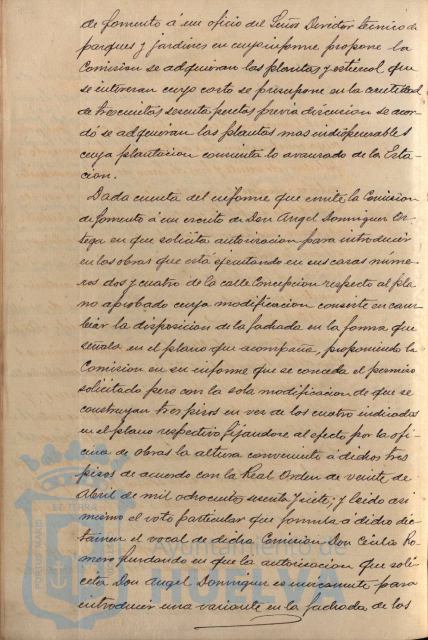 de fomento á un oficio del Señor Director tecnico de
parques y jardines en cuyo informe propone la
Comision se adquieran las plantas y estiercol que
se interesan cuyo costo se presupone en la cantidad
de trescientas sesenta pesetas previa discusion se acor-
dó se adquieran las plantas mas indispensables
cuya plantacion consienta lo avanzado de la Esta-
cion.
Dada cuenta del informe que emite la Comision
de fomento á un escrito de Don Angel Dominguez Or-
tega en que solicita autorizacion para introducir
en las obras que está ejecutando en sus casas núme-
ros dos y cuatro de la calle Concepcion respecto al pla-
no aprobado cuya modificacion consiste en cam-
biar la disposicion de la fachada en la forma que
señala en el plano que acompaña, proponiendo la
Comision en su informe que se conceda el permiso
solicitado pero con la sola modificacion de que se
construyan tres pisos en vez de los cuatro indicados
en el plano respectivo fijandose al efecto por la ofi-
cina de obras la altura conveniente á dichos tres
pisos de acuerdo con la Real Orden de veinte de
Abril de mil ochocientos sesenta y siete; y leido asi
mismo el voto particular que formula á dicho dic-
tamen el vocal de dicha Comision Don
mero fundando en que la autorizacion que soli-
cita Don Angel Dominguez es unicamente para
introducir una variante en la fachada de los
ET TERRA
Ayuntamiento de
HUELVA